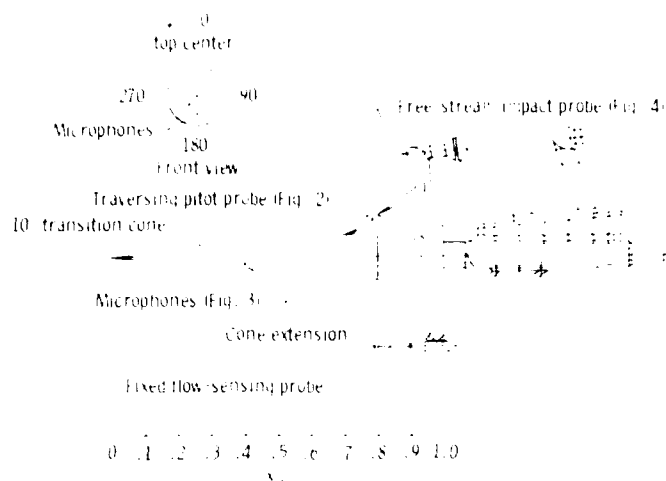 0
top center
270 90
Microphones
180
Front view
Free-stream impact probe (Fig. 4)
Traversing pitot probe (Fig. 2)
10 transition cone
Microphones (Fig. 3)
Cone extension
Fixed flow-sensing probe
0 .1 .2 .3 .4 .5 .6 .7 .8 .9 1.0